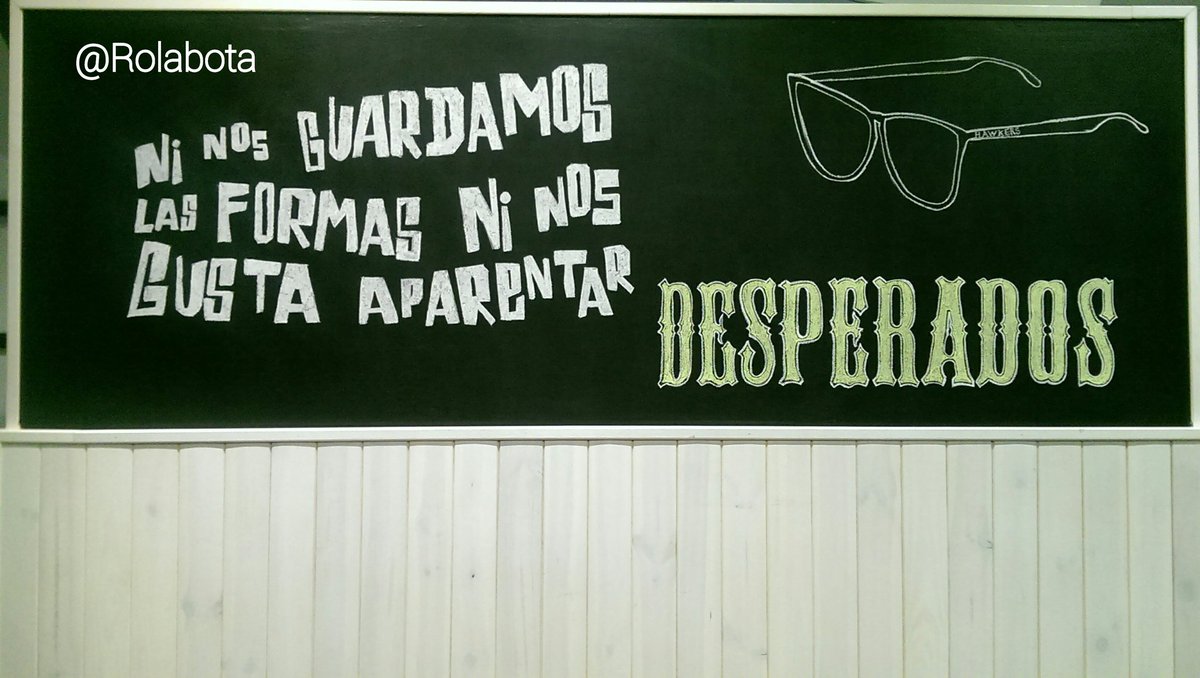 @Rolabota
Ni NOS GUARDAMOS
LAS FORMAS Ni NOS
GUSTA APARENTAR
HAWKERS
DESPERADOS